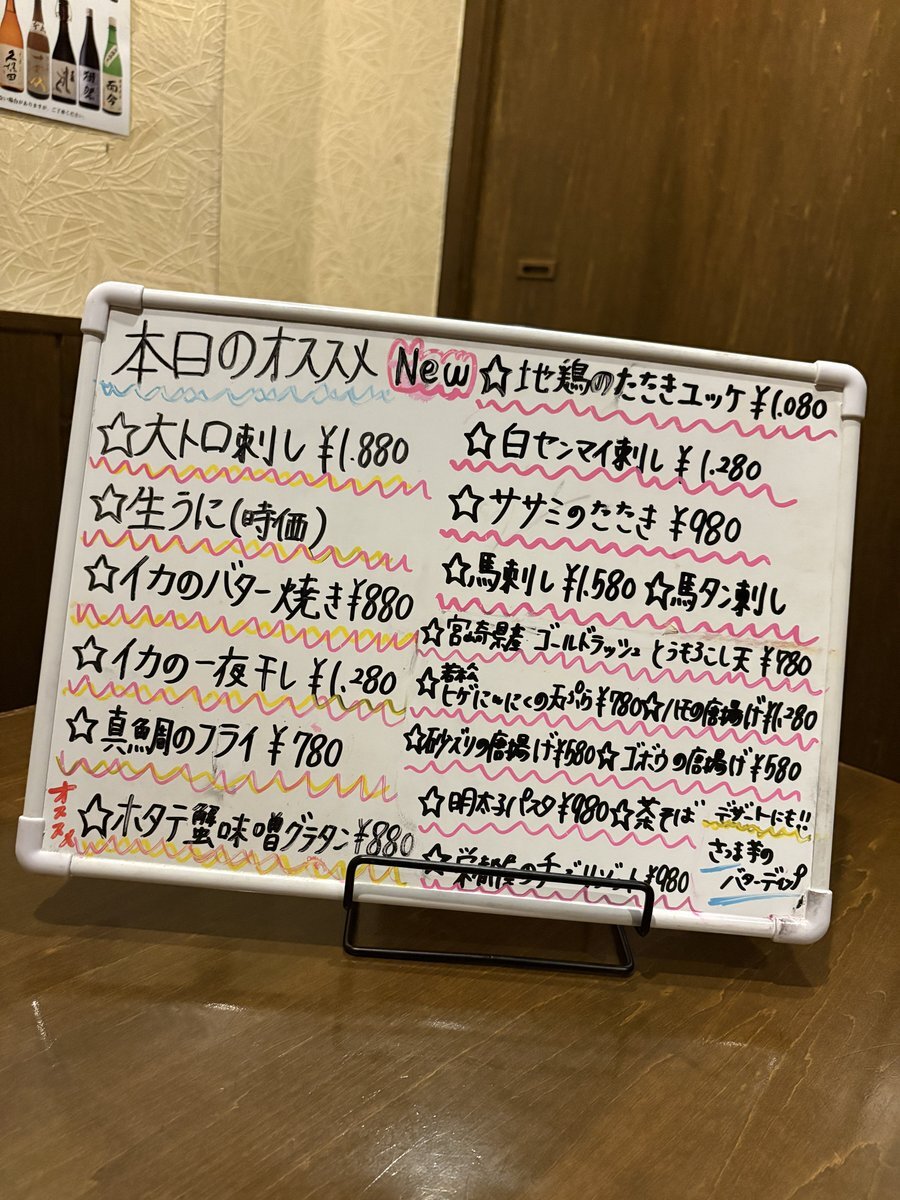 本日のオススメ
☆大トロ刺し ¥1.880
☆生うに(時価)
☆イカのバター焼き¥880
☆イカの一夜干し ¥1.280
☆真鯛のフライ ¥780
オススメ
☆ホタテ蟹味噌グラタン¥880
New ☆地鶏のたたきユッケ ¥1.080
☆白センマイ刺し ¥1.280
☆ササミのたたき ¥980
☆馬刺し ¥1.580 ☆馬タン刺し
☆宮崎県産 ゴールドラッシュ とうもろこし天 ¥780
☆ ヒゲにんにくの天ぷら¥780☆ハモの唐揚げ¥1.280
☆砂ズリの唐揚げ¥580☆ゴボウの唐揚げ¥580
☆明太子パスタ¥980☆茶そば
¥980
デザートにも!!
さつま芋の
バターディップ
久保田
獺祭
而今
ない場合がありますが、ご了承ください。